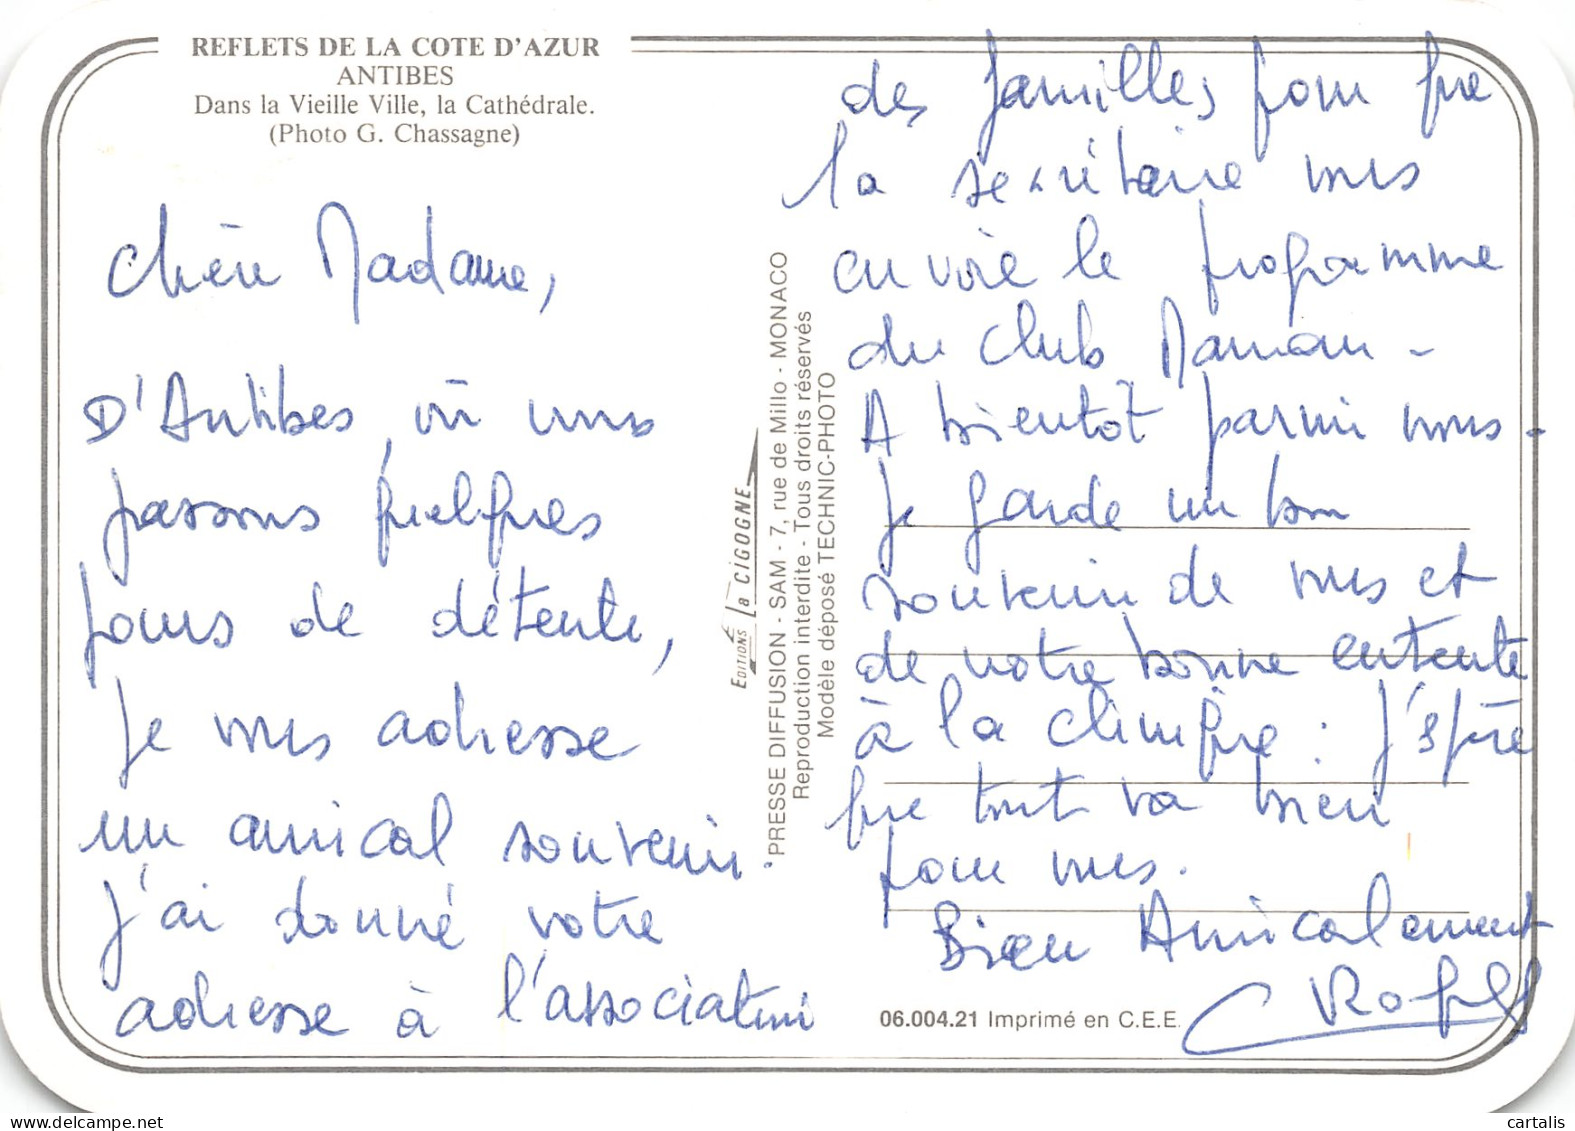 REFLETS DE LA COTE D'AZUR
ANTIBES
Dans la Vieille Ville, la Cathédrale.
(Photo G. Chassagne)
Chère Madame,
D'Antibes, où nous
passons quelques
jours de détente,
je vous adresse
un amical souvenir.
J'ai donné votre
adresse à l'association
EDITIONS La CIGOGNE
PRESSE DIFFUSION - SAM - 7, rue de Millo - MONACO
Reproduction interdite - Tous droits réservés
Modèle déposé TECHNIC-PHOTO
des familles pour que
la secrétaire vous
envoie le programme
du club Maman -
A bientôt parmi nous -
Je garde un bon
souvenir de vous et
de notre bonne entente
à la clinique : j'espère
que tout va bien
pour vous.
Bien Amicalement
06.004.21 Imprimé en C.E.E.
delcampe.net
cartalis